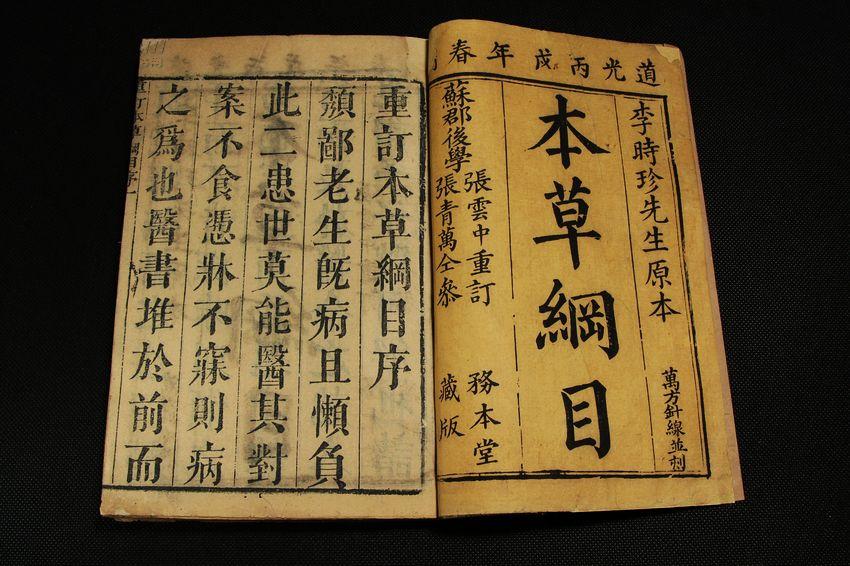 道光丙戌年春
李時珍先生原本
萬方針線並刻
本草綱目
蘇郡後學
張雲中重訂
張青萬仝參
務本堂
藏版
重訂本草綱目序
頽鄙老生旣病且懶負
此二患世莫能醫其對
案不食憑牀不寐則病
之爲也醫書堆於前而
重訂本草綱目序一